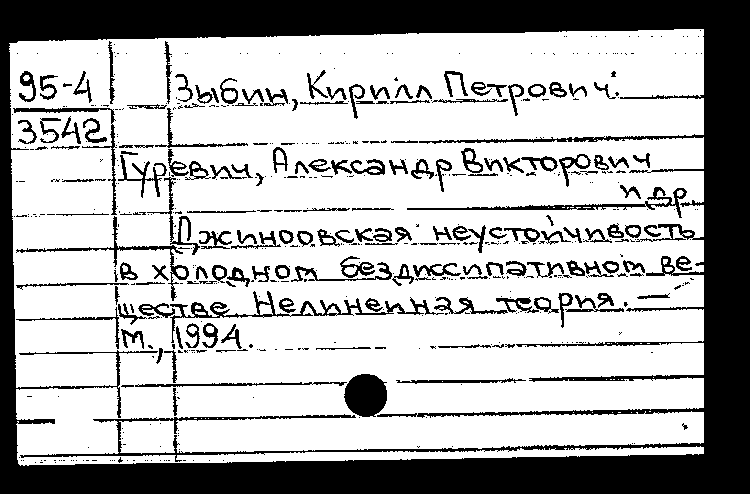 95-4 Зыбин, Кирилл Петрович.
3542
Гуревич, Александр Викторович
и др.
Джинсовская неустойчивость
в холодном бездиссипативном ве-
ществе Нелинейная теория. —
М., 1994.